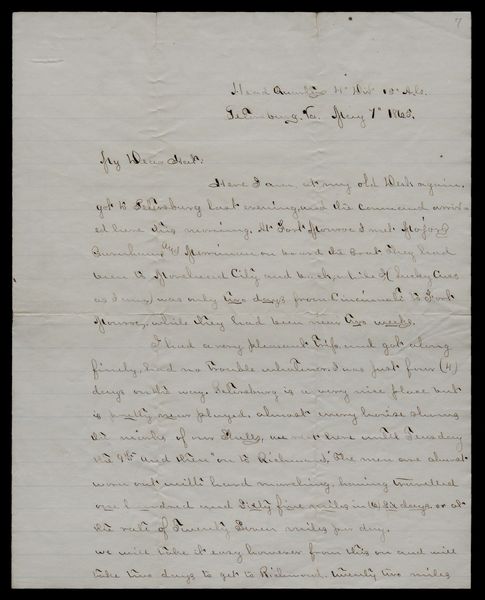 7
Head Quarters 4" Div 15" A.C.
Petersburg, Va. May 7" 1865.
My Dear Kate:
Here I am, at my old Desk again,
got to Petersburg last evening, and the command arriv-
ed here this morning. At Fort Monroe I met Majors
Burnham, and Merriman on board the Boat. They had
been to Morehead City and back, while I (lucky Cuss
as I am) was only two days from Cincinnati to Fort
Monroe, while they had been near two weeks.
I had a very pleasant trip and got along
finely, had no trouble whatever. I was just four (4)
days on the way. Petersburg is a very nice place but
is pretty near played, almost every house shows
the marks of our Shells, we rest here until Tuesday
the 9th and then "on to Richmond," The men are almost
worn out with hard marching, having travelled
one hundred and Sixty five miles in six days, or at
the rate of Twenty Seven miles per day.
we will take it easy however from this on and will
take two days to get to Richmond, twenty two miles